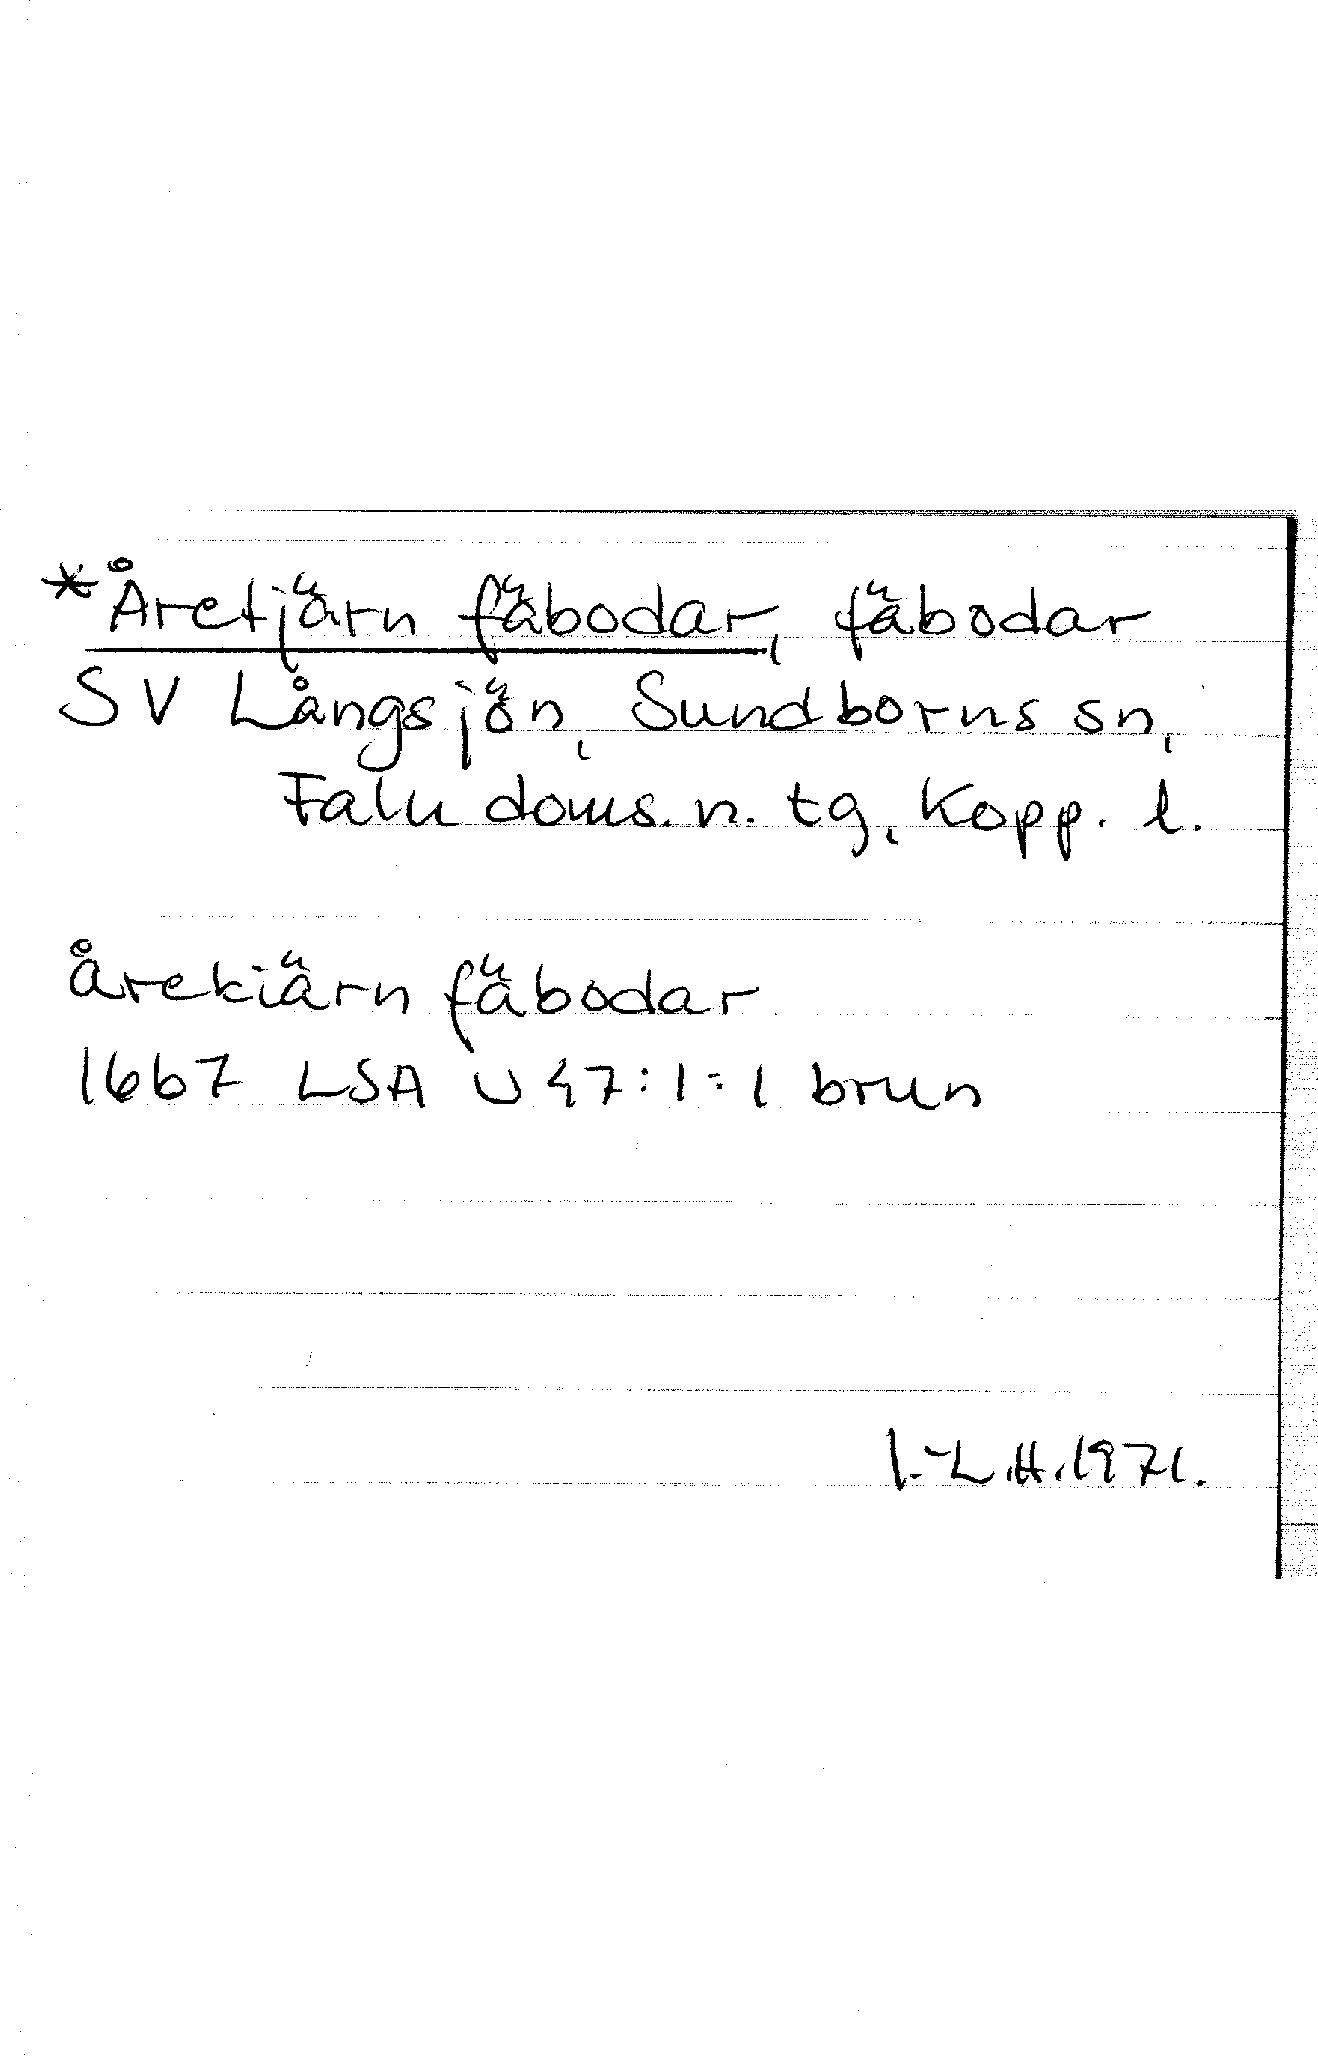 *Åretjärn fäbodar, fäbodar
SV Långsjön, Sundborns sn,
Falu doms. n. tg, Kopp. l.
årekiärn fäbodar
1667 LSA U 47:1:1 brun
I.-L.H.1971.